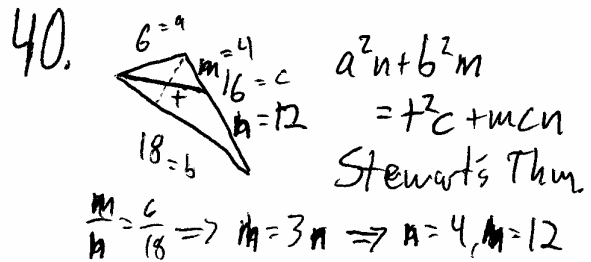 40.
6=a
m=4
16=c
n=12
t
18=b
a²n+b²m
=t²c+mcn
Stewart's Thm.
m/n = 6/18 => m=3n => n=4, m=12